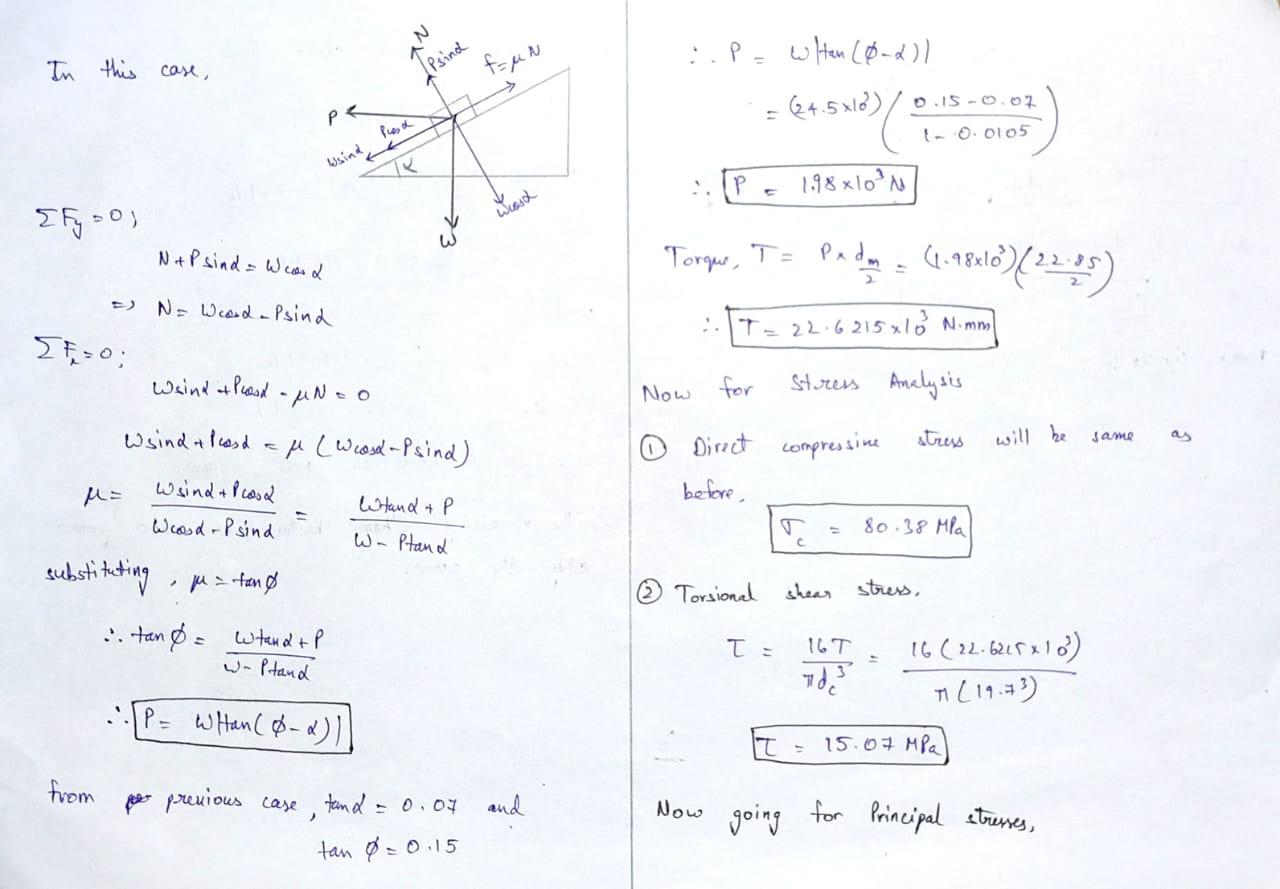 In this case,
N
Psinα
f=μN
P
Pcosα
Wsinα
α
Wcosα
W
ΣFy=0;
N+Psinα=Wcosα
=> N= Wcosα-Psinα
ΣFx=0;
Wsinα+Pcosα-μN=0
Wsinα+Pcosα=μ(Wcosα-Psinα)
μ= Wsinα+Pcosα / Wcosα-Psinα = Wtanα+P / W-Ptanα
substituting, μ=tanØ
∴ tanØ= Wtanα+P / W-Ptanα
∴ P= W|tan(Ø-α)|
from previous case, tanα=0.07 and
tanØ=0.15
∴ P= W|tan(Ø-α)|
= (24.5x10³)(0.15-0.07 / 1-0.0105)
∴ P = 1.98x10³N
Torque, T= Px dm/2 = (1.98x10³)(22.85/2)
∴ T=22.6215x10³ N.mm
Now for Stress Analysis
① Direct compressive stress will be same as
before,
σc = 80.38 MPa
② Torsional shear stress,
τ = 16T / πdc³ = 16(22.6215x10³) / π(19.7³)
τ = 15.07 MPa
Now going for Principal stresses,